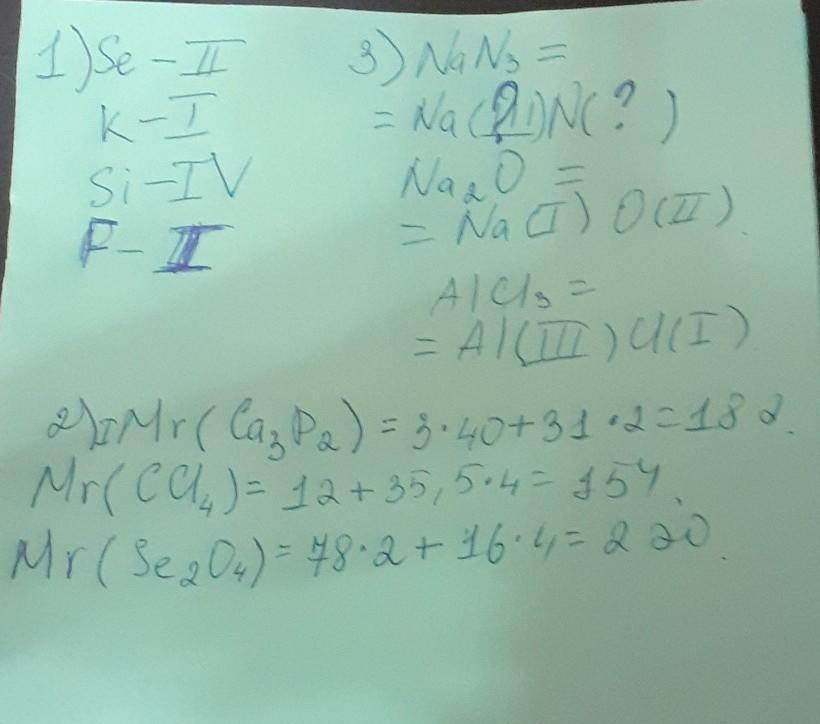 1) Se - II
K - I
Si - IV
F - II
3) NaN₃ =
= Na(I)N(?)
Na₂O =
= Na(I) O(II).
AlCl₃ =
= Al(III)Cl(I)
2) Mr(Ca₃P₂) = 3·40+31·2=182.
Mr(CCl₄)= 12+35,5·4= 154.
Mr(Se₂O₄)= 78·2+16·4= 220.